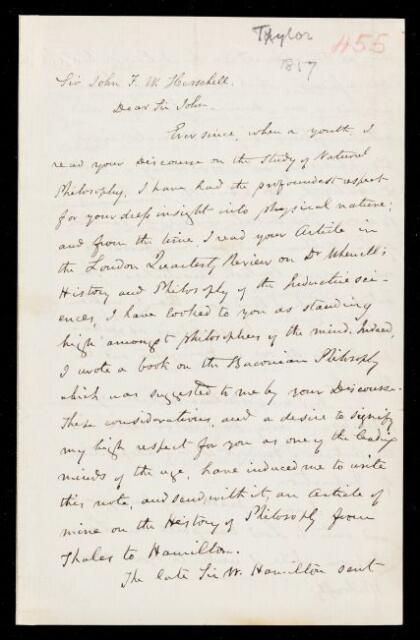 Taylor
455
1857
Sir John F. W. Herschell.
Dear Sir John.
Ever since, when a youth, I
read your Discourse on the Study of Natural
Philosophy, I have had the profoundest respect
for your deep insight into physical nature;
and from the time I read your Article in
the London Quarterly Review on Dr Whewell's
History and Philosophy of the Inductive sci-
ences, I have looked to you as standing
high amongst philosophers of the mind. Indeed,
I wrote a book on the Baconian Philosophy
which was suggested to me by your Discourse.
These considerations, and a desire to signify
my high respect for you as one of the leading
minds of the age, have induced me to write
this note, and send, with it, an article of
mine on the History of Philosophy from
Thales to Hamilton.
The late Sir W. Hamilton sent